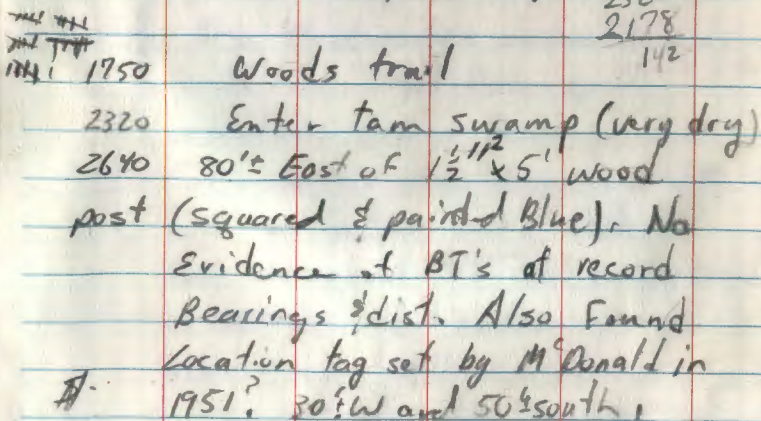 2178
142
1750 Woods trail
2320 Enter tam swamp (very dry)
2640 80'± East of 1½"² x 5' wood
post (squared & painted Blue). No
Evidence of BT's at record
Bearings & dist. Also Found
Location tag set by McDonald in
1951? 30'±W and 50'±South,